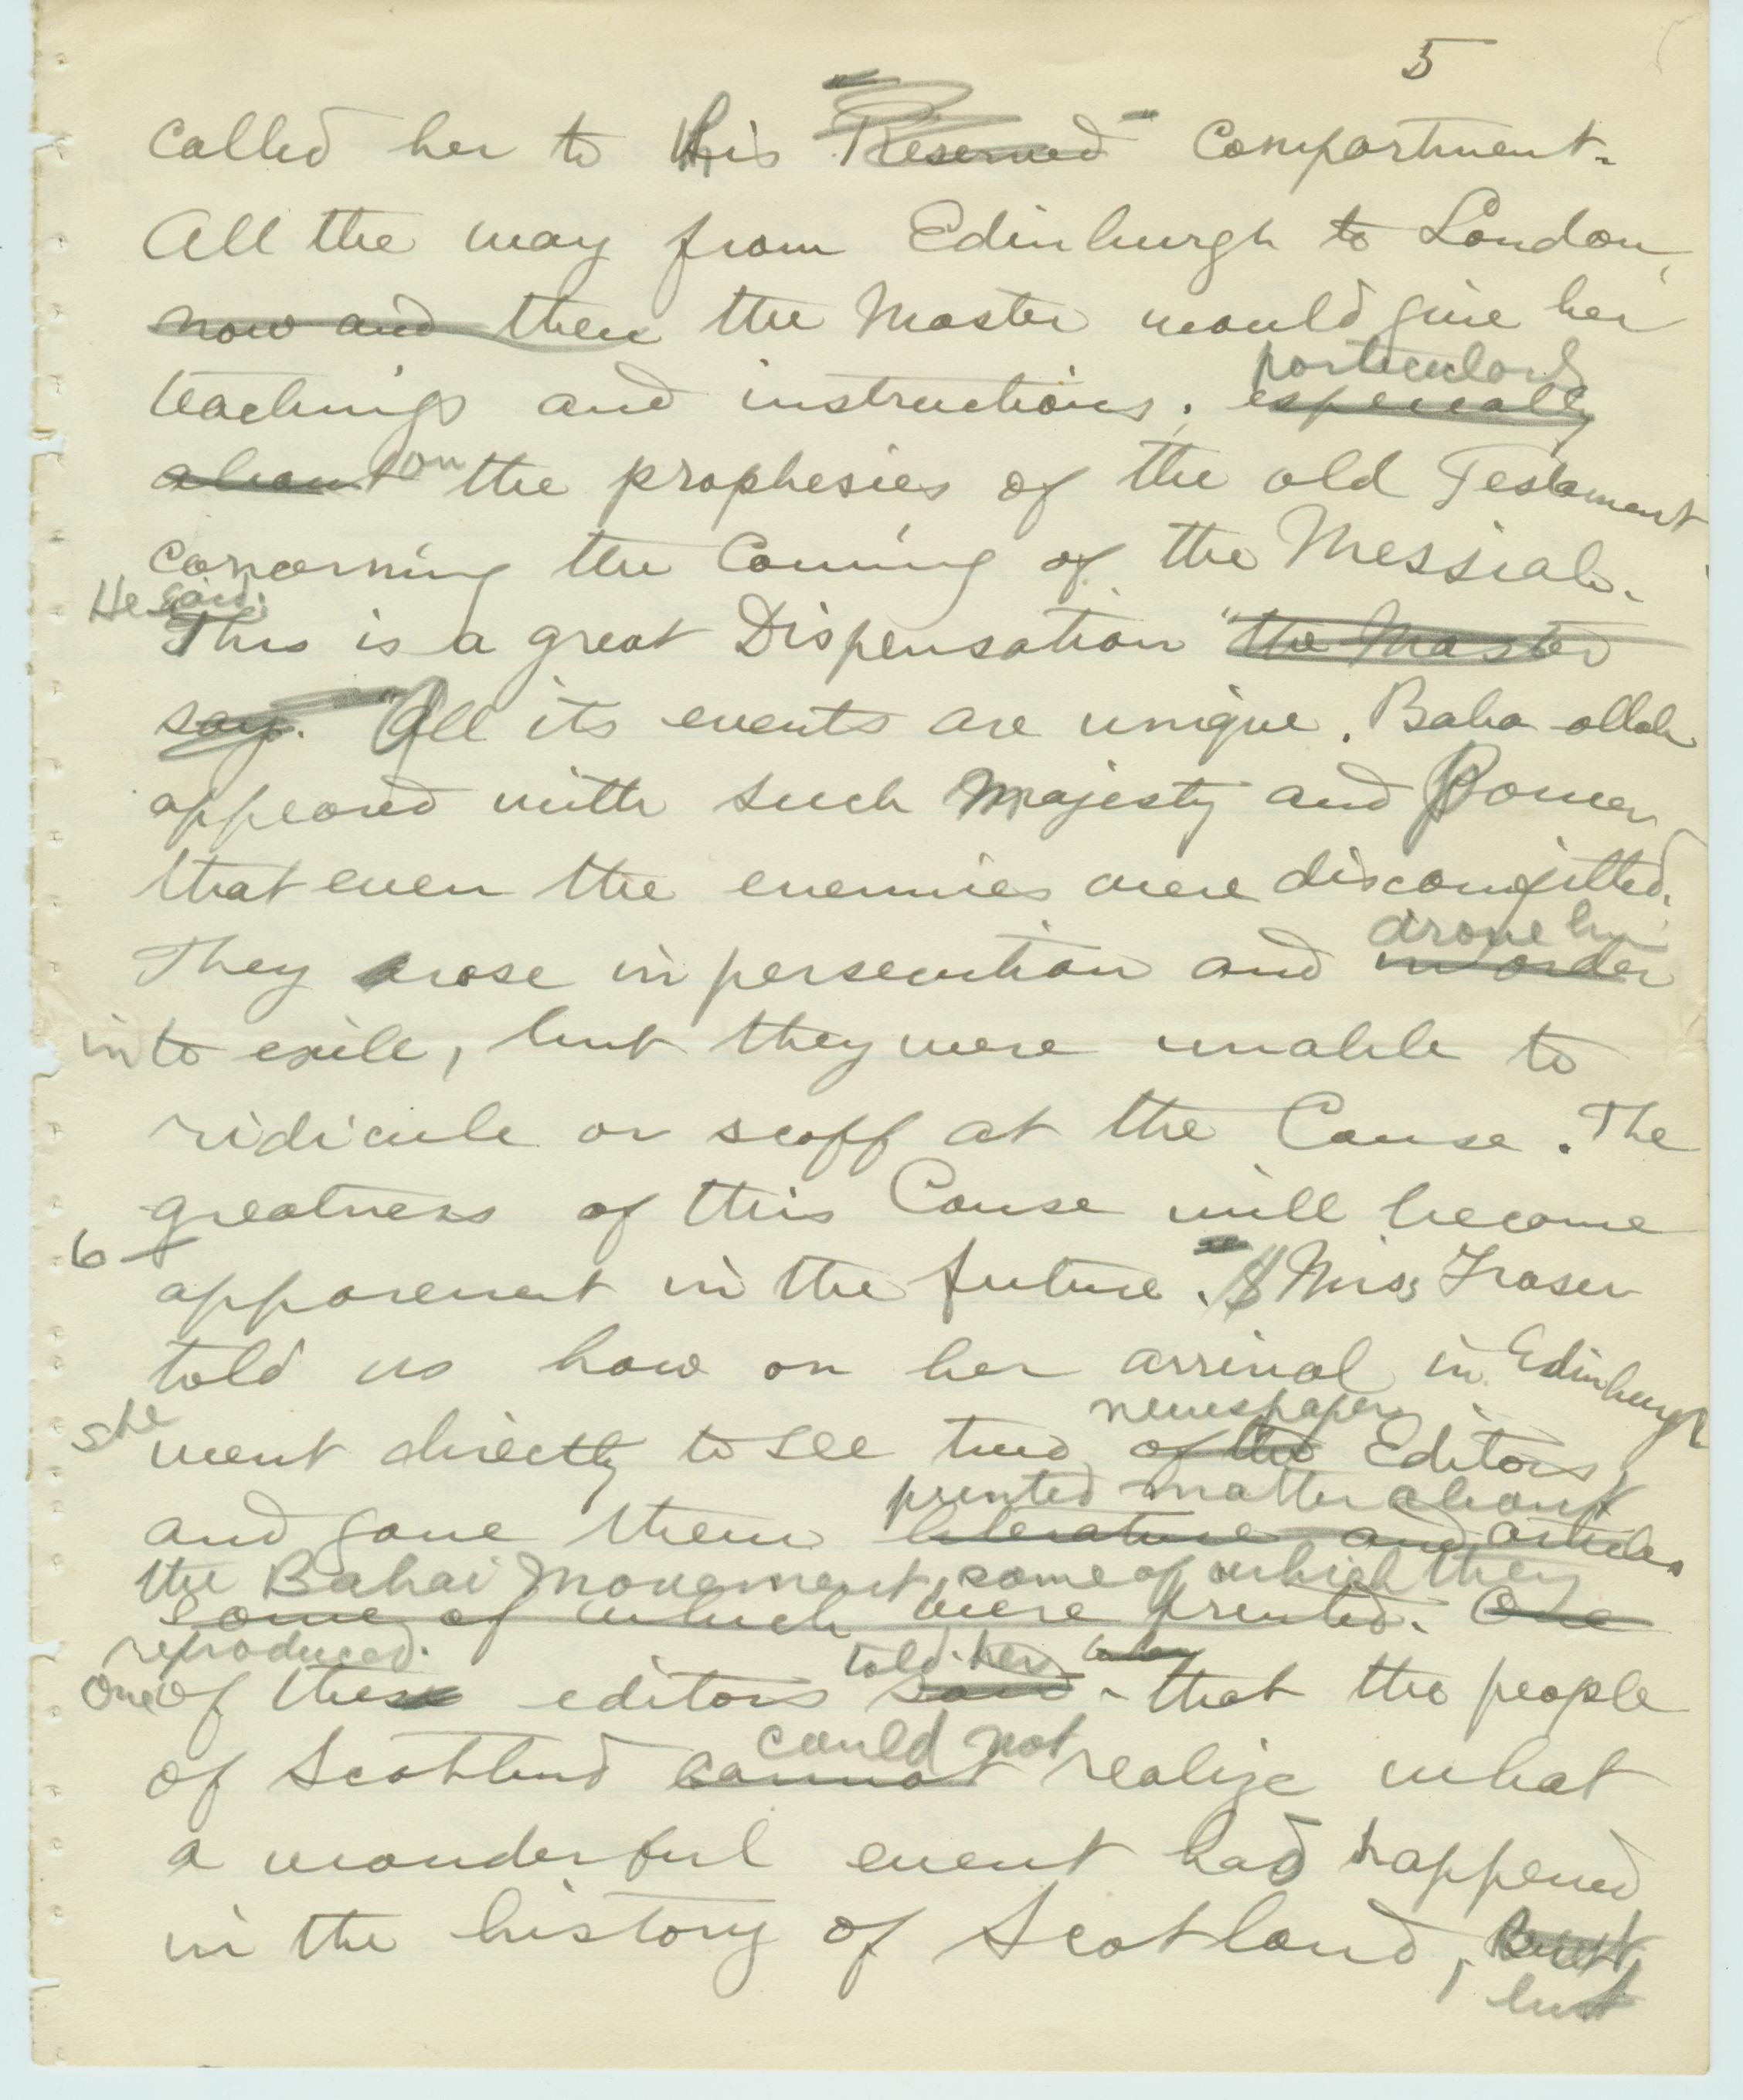 5
called her to His "Reserved" compartment.
All the way from Edinburgh to London,
now and then the Master would give her
particularly
teachings and instructions; especially
about on the prophesies of the old Testament
concerning the Coming of the Messiah.
He said:
This is a great Dispensation "the Master
say. "All its events are unique. Baha-ollah
appeared with such Majesty and Power
that even the enemies were discomfitted.
drove him
They arose in persecution and in order
into exile, but they were unable to
ridicule or scoff at the Cause. The
greatness of this Cause will become
6
apparent in the future." Miss Fraser
told us how on her arrival in Edinburgh
she newspaper
went directly to see two of the Editors,
printed matter about
and gave them literature and articles
the Bahai Movement, some of which they
some of which were printed. One
reproduced. told her
One of these editors said that the people
could not
of Scotland cannot realize what
a wonderful event had happened
in the history of Scotland, but,
but